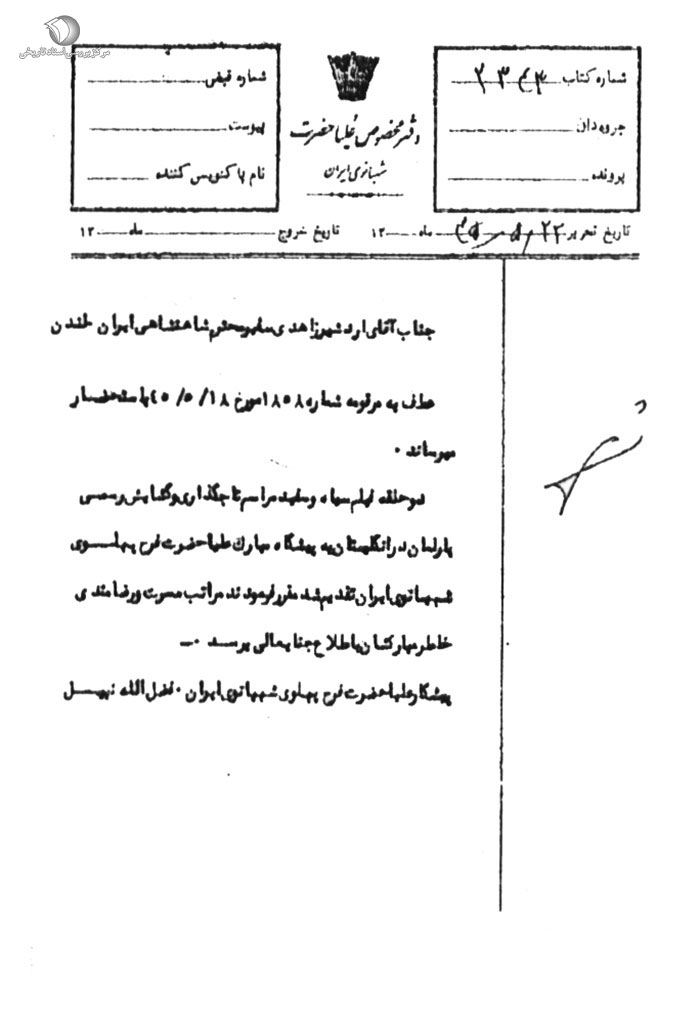 مرکز بررسی اسناد تاریخی
شماره کتاب ۲۳۴۳
جزوه‌دان
پرونده
دفتر مخصوص علیاحضرت
شهبانوی ایران
شماره قبض
پیوست
نام پاکنویس کننده
تاریخ تحریر ۲۲ ماه ۱۳ تاریخ خروج ماه ۱۳
جناب آقای اردشیر زاهدی سفیر محترم شاهنشاهی ایران لندن
عطف به مرقومه شماره ۱۸۵۸ مورخ ۱۸/ ۵/ ۴۵ باستحضار
میرساند ۰
دو حلقه فیلم سیاه و سفید مراسم تاجگذاری و گشایش رسمی
پارلمان در انگلستان به پیشگاه مبارك علیاحضرت فرح پهلوی
شهبانوی ایران تقدیم شد مقرر فرمودند مراتب مسرت و رضامندی
خاطر مبارکشان باطلاع جنابعالی برسد ۰ـ
پیشکار علیاحضرت فرح پهلوی شهبانوی ایران ۰ فضل الله نبیل